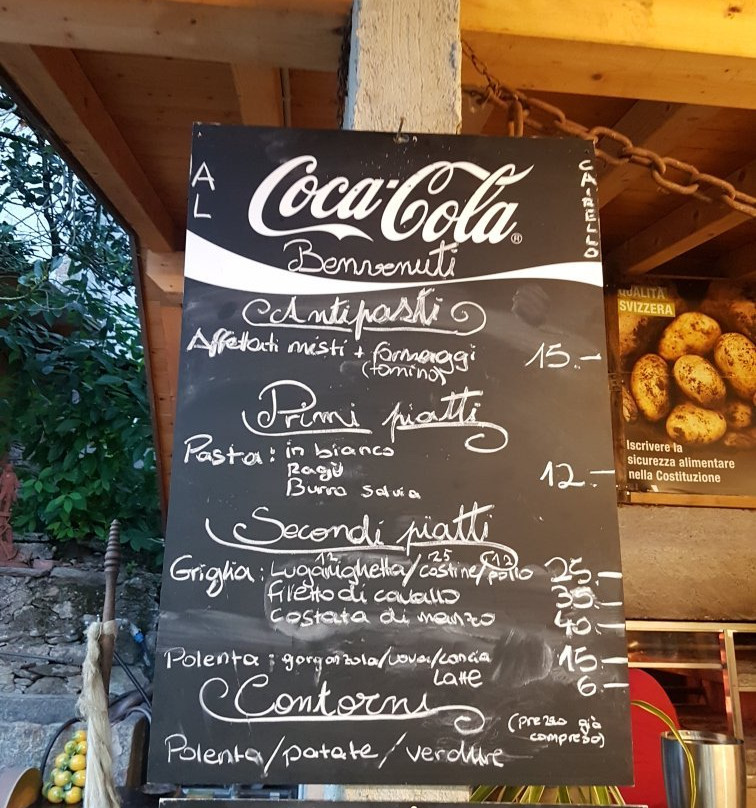 AL
Coca-Cola®
CAIRELLO
Benvenuti
Antipasti
Affettati misti + formaggi 15.-
(tomino)
Primi piatti
Pasta: in bianco
Ragù 12.-
Burro salvia
Secondi piatti
12 25 (12)
Griglia: Luganighetta/costine/pollo 25.-
Filetto di cavallo 35.-
Costata di manzo 40.-
Polenta: gorgonzola/uova/concia 15.-
Latte 6.-
Contorni
(prezzo già
compreso)
Polenta/patate/verdure
QUALITÀ
SVIZZERA
Iscrivere la
sicurezza alimentare
nella Costituzione